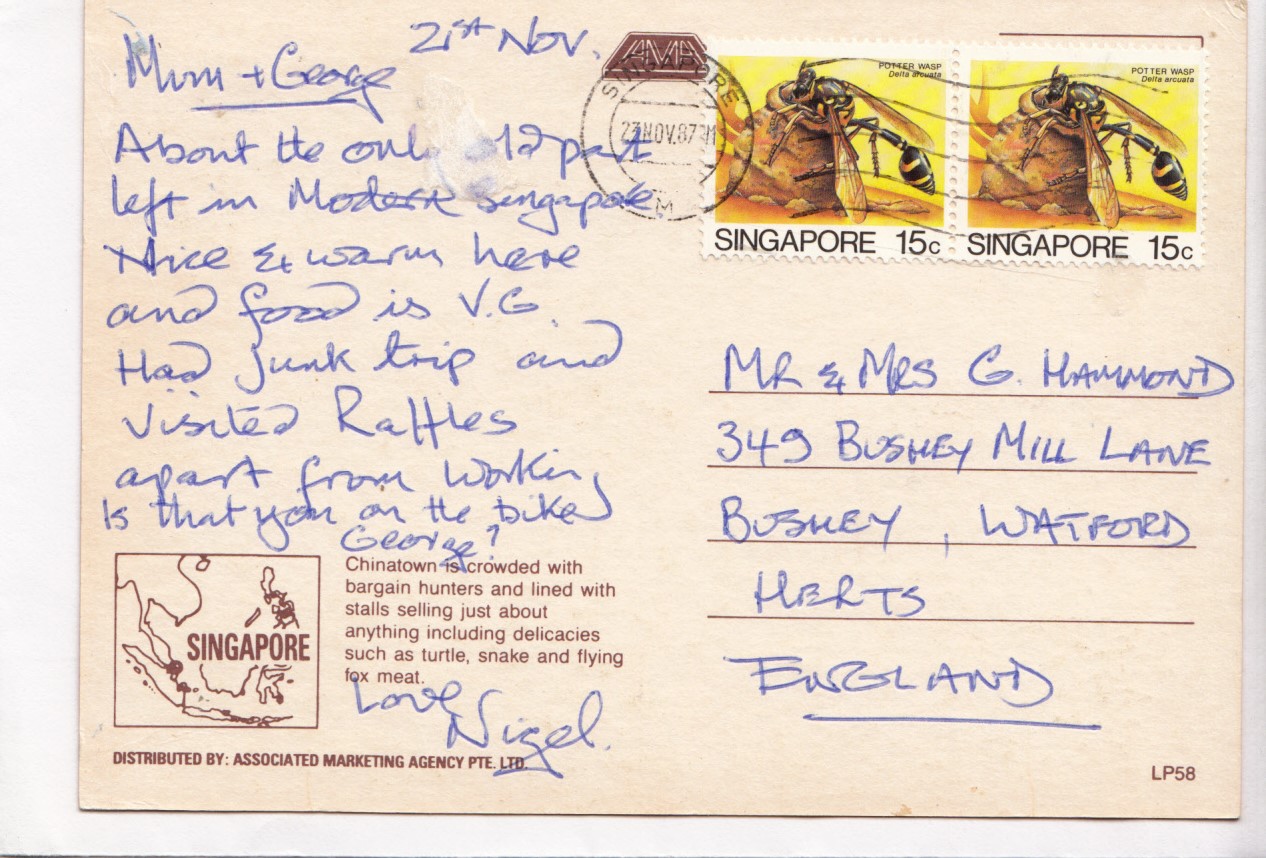 21st Nov.
Mum + George
About the only old part
left in Modern Singapore
Nice & warm here
and food is V.G.
Had junk trip and
visited Raffles
apart from working
Is that you on the bike
George?
Chinatown is crowded with
bargain hunters and lined with
stalls selling just about
anything including delicacies
such as turtle, snake and flying
fox meat.
Love
Nigel.
SINGAPORE
DISTRIBUTED BY: ASSOCIATED MARKETING AGENCY PTE. LTD.
AMA
SINGAPORE
23NOV.87
M
POTTER WASP
Delta arcuata
SINGAPORE 15c
POTTER WASP
Delta arcuata
SINGAPORE 15c
MR & MRS G. HAMMOND
349 BUSHEY MILL LANE
BUSHEY, WATFORD
HERTS
ENGLAND
LP58